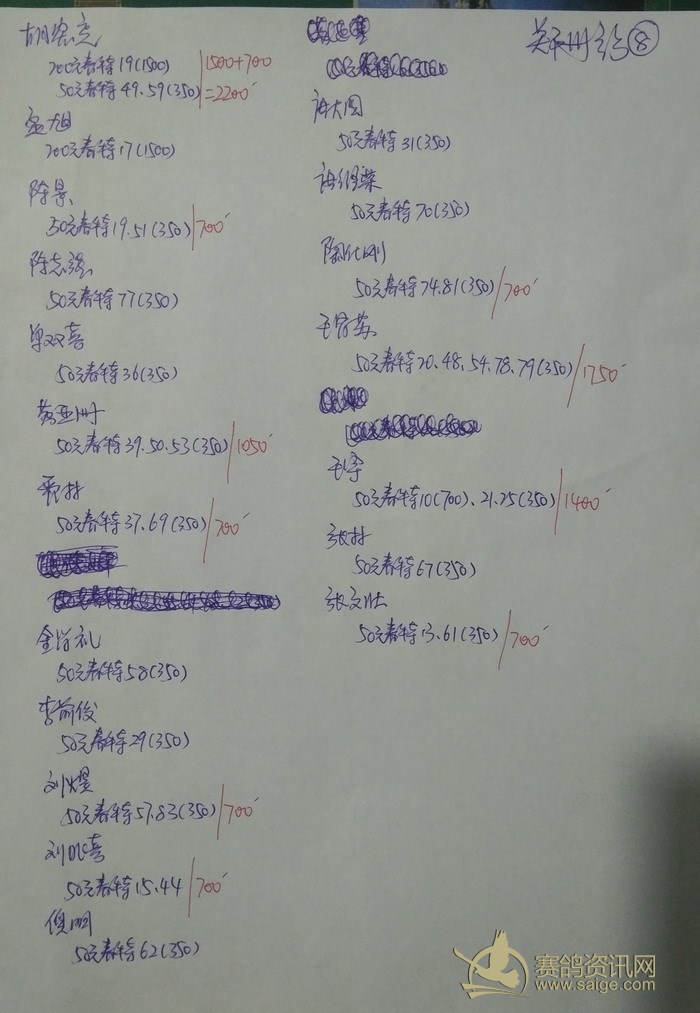 200元春特19(1500)
50元春特49.59(350)
1500+700
=2200
孟旭
200元春特17(1500)
陈景
50元春特19.51(350) 700
陈志强
50元春特77(350)
单双喜
50元春特36(350)
黄亚洲
50元春特39.50.53(350) 1050
50元春特37.69(350) 700
金学礼
50元春特58(350)
李前俊
50元春特29(350)
刘煜
50元春特57.83(350) 700
50元春特15.44 700
倪明
50元春特62(350)
⑧
许大图
50元春特31(350)
50元春特70(350)
50元春特74.81(350) 700
50元春特20.48.54.78.79(350) 1750
50元春特10(700).21.25(350) 1400
张村
50元春特67(350)
张文胜
50元春特13.61(350) 700
赛鸽资讯网
www.saige.com